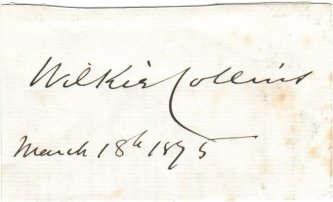 Wilkie Collins
March 18th 1875